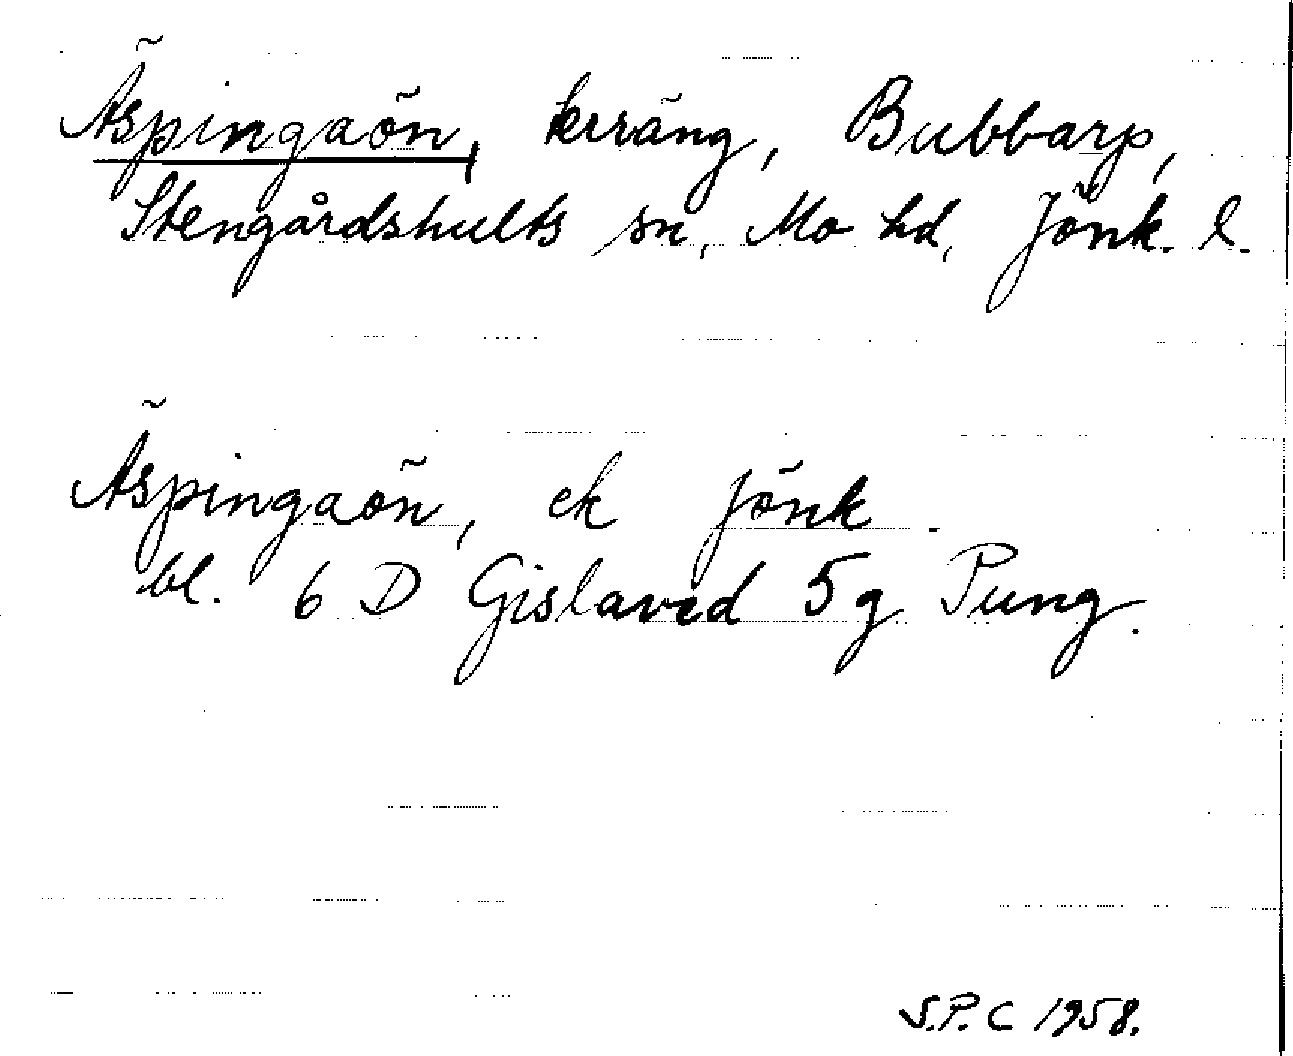 Äspingaön, terräng, Bubbarp,
Stengårdshults sn, Mo hd, Jönk. l.
Äspingaön, ek Jönk.
bl. 6 D Gislaved 5g Pung.
S.P.C 1958.